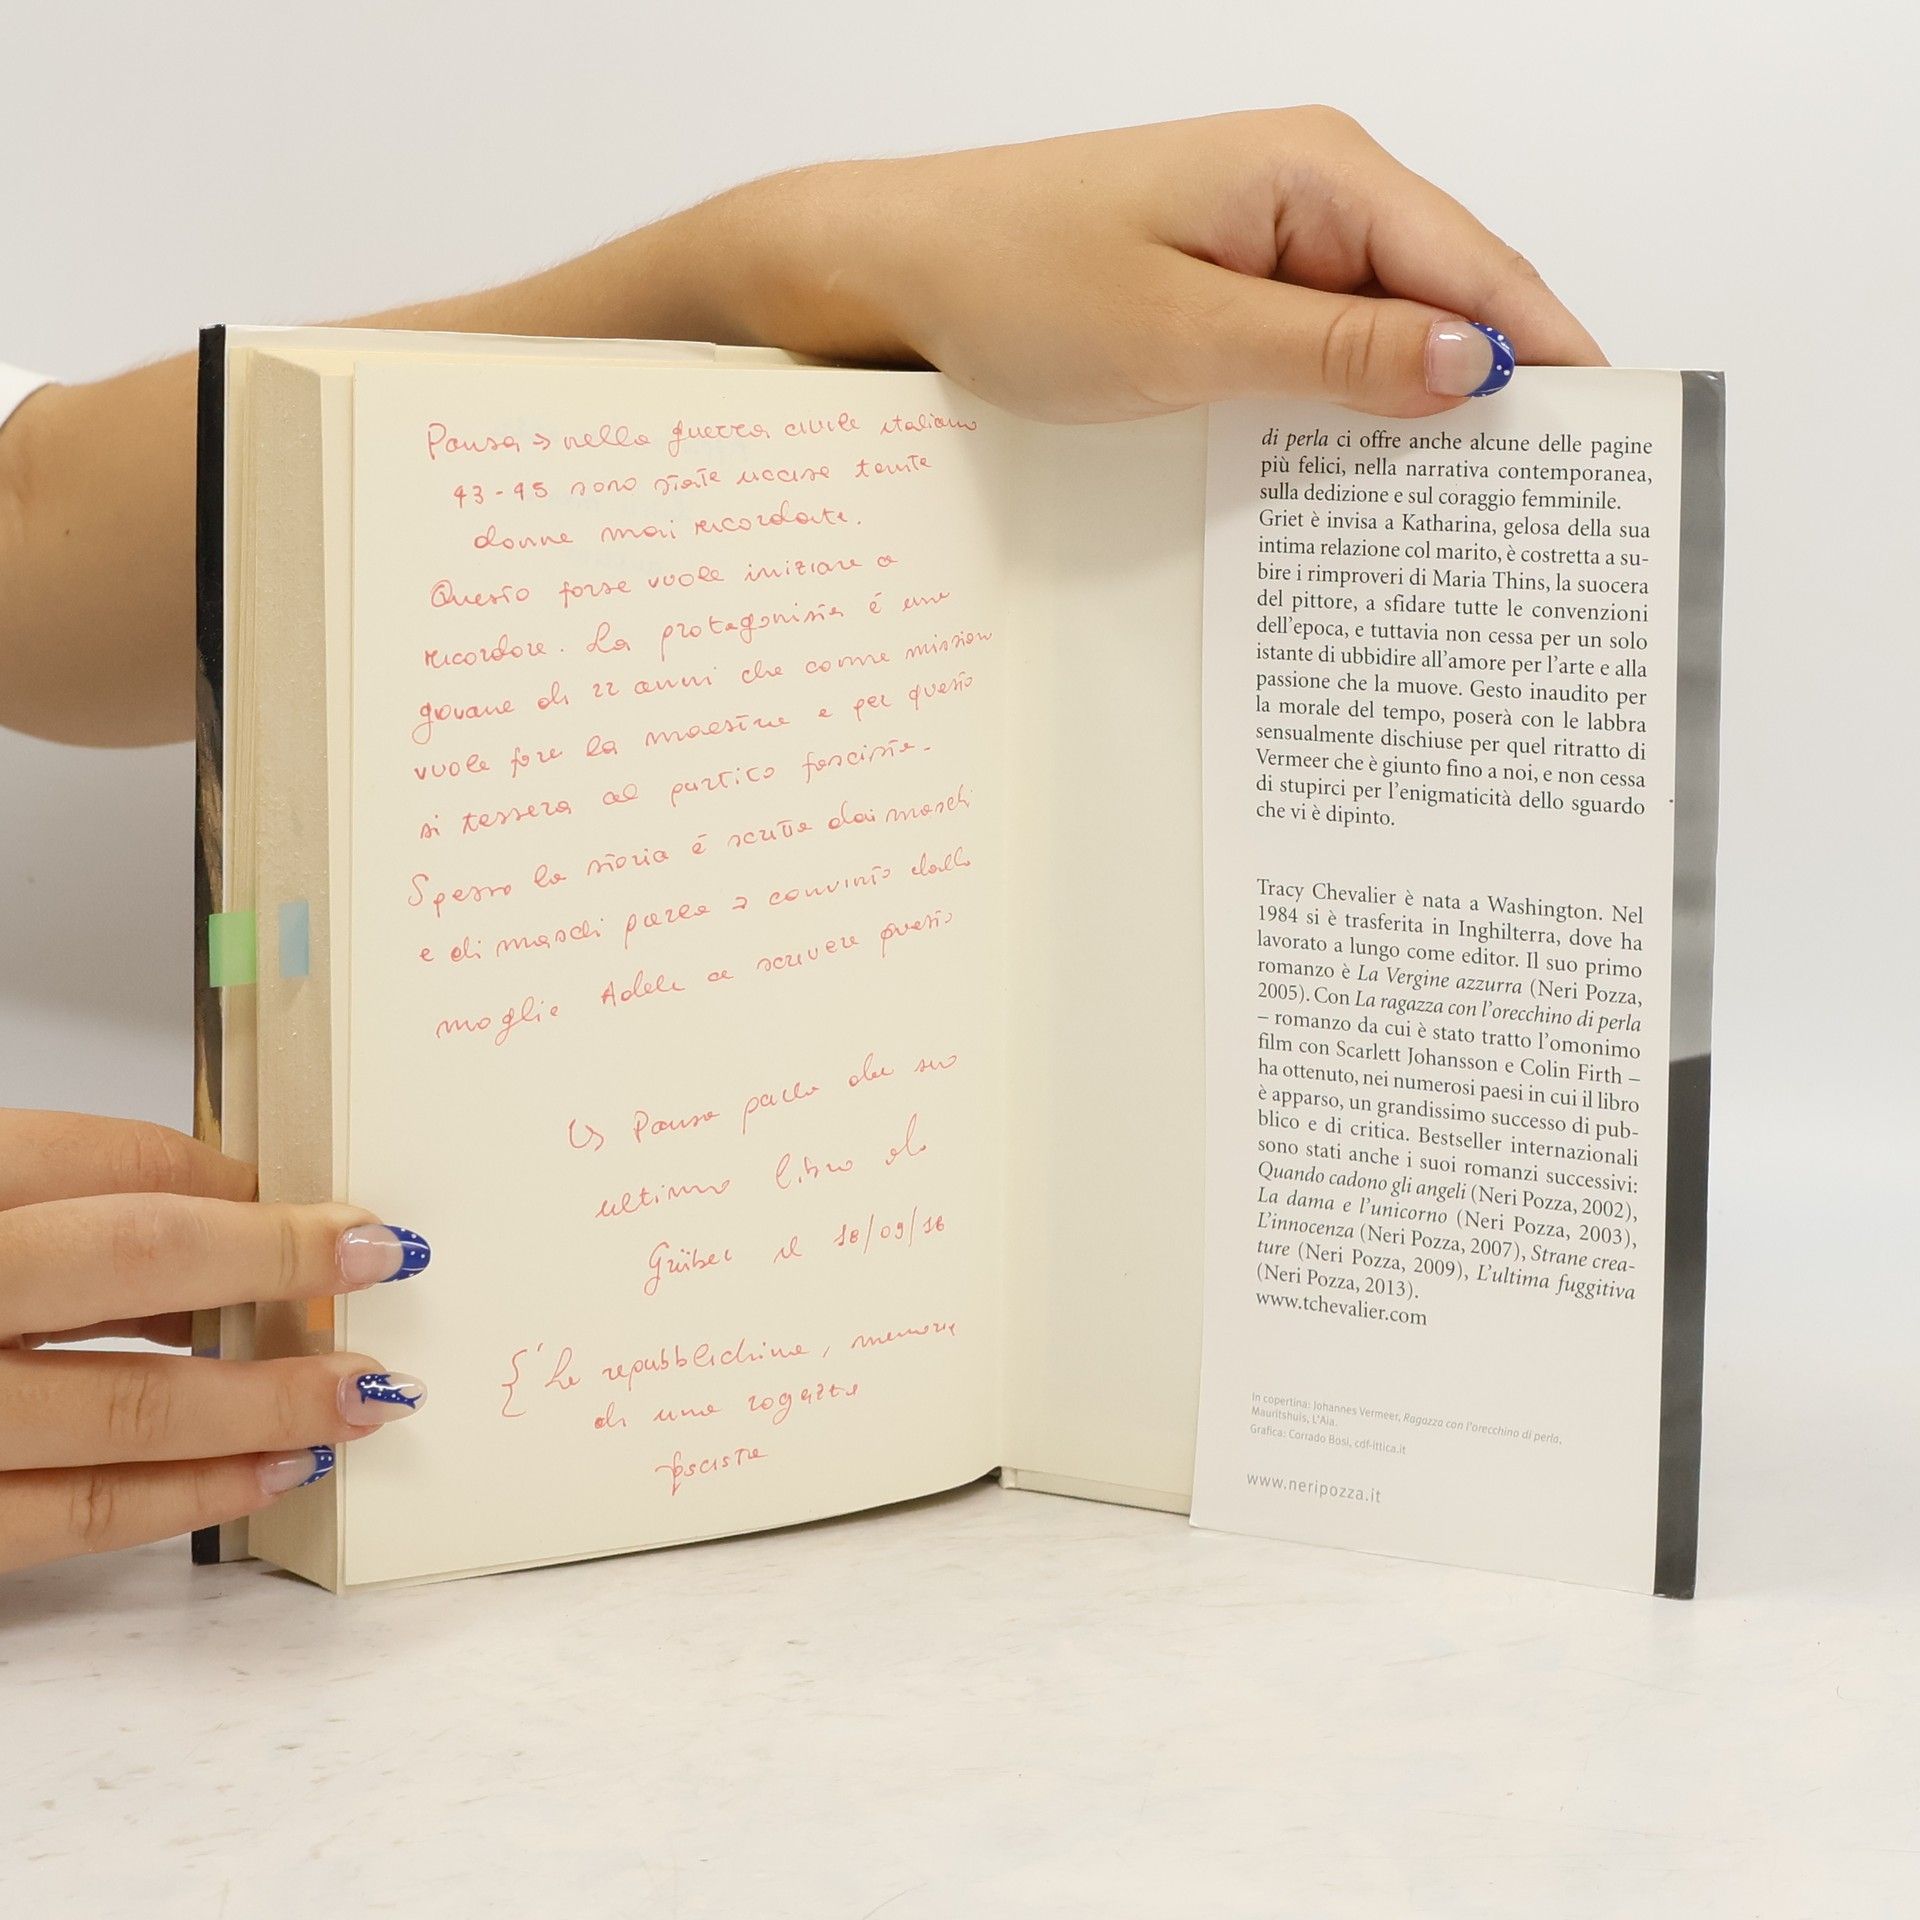 Pansa → nella guerra civile italiana
43-45 sono state uccise tante
donne mai ricordate.
Questo forse vuole iniziare a
ricordare. La protagonista è una
giovane di 22 anni che come mission
vuole fare la maestra e per questo
si tessera al partito fascista.
Spesso la storia è scritta dai maschi
e di maschi parla → convinto dalla
moglie Adele a scrivere questo
↳ Pansa parla del suo
ultimo libro da
Grüber il 18/09/18
{ 'La repubblichina, memorie
di una ragazza
fascista
di perla ci offre anche alcune delle pagine
più felici, nella narrativa contemporanea,
sulla dedizione e sul coraggio femminile.
Griet è invisa a Katharina, gelosa della sua
intima relazione col marito, è costretta a su-
bire i rimproveri di Maria Thins, la suocera
del pittore, a sfidare tutte le convenzioni
dell'epoca, e tuttavia non cessa per un solo
istante di ubbidire all'amore per l'arte e alla
passione che la muove. Gesto inaudito per
la morale del tempo, poserà con le labbra
sensualmente dischiuse per quel ritratto di
Vermeer che è giunto fino a noi, e non cessa
di stupirci per l'enigmaticità dello sguardo
che vi è dipinto.
Tracy Chevalier è nata a Washington. Nel
1984 si è trasferita in Inghilterra, dove ha
lavorato a lungo come editor. Il suo primo
romanzo è La Vergine azzurra (Neri Pozza,
2005). Con La ragazza con l'orecchino di perla
– romanzo da cui è stato tratto l'omonimo
film con Scarlett Johansson e Colin Firth –
ha ottenuto, nei numerosi paesi in cui il libro
è apparso, un grandissimo successo di pub-
blico e di critica. Bestseller internazionali
sono stati anche i suoi romanzi successivi:
Quando cadono gli angeli (Neri Pozza, 2002),
La dama e l'unicorno (Neri Pozza, 2003),
L'innocenza (Neri Pozza, 2007), Strane crea-
ture (Neri Pozza, 2009), L'ultima fuggitiva
(Neri Pozza, 2013).
www.tchevalier.com
In copertina: Johannes Vermeer, Ragazza con l'orecchino di perla,
Mauritshuis, L'Aia.
Grafica: Corrado Bosi, cdf-ittica.it
www.neripozza.it